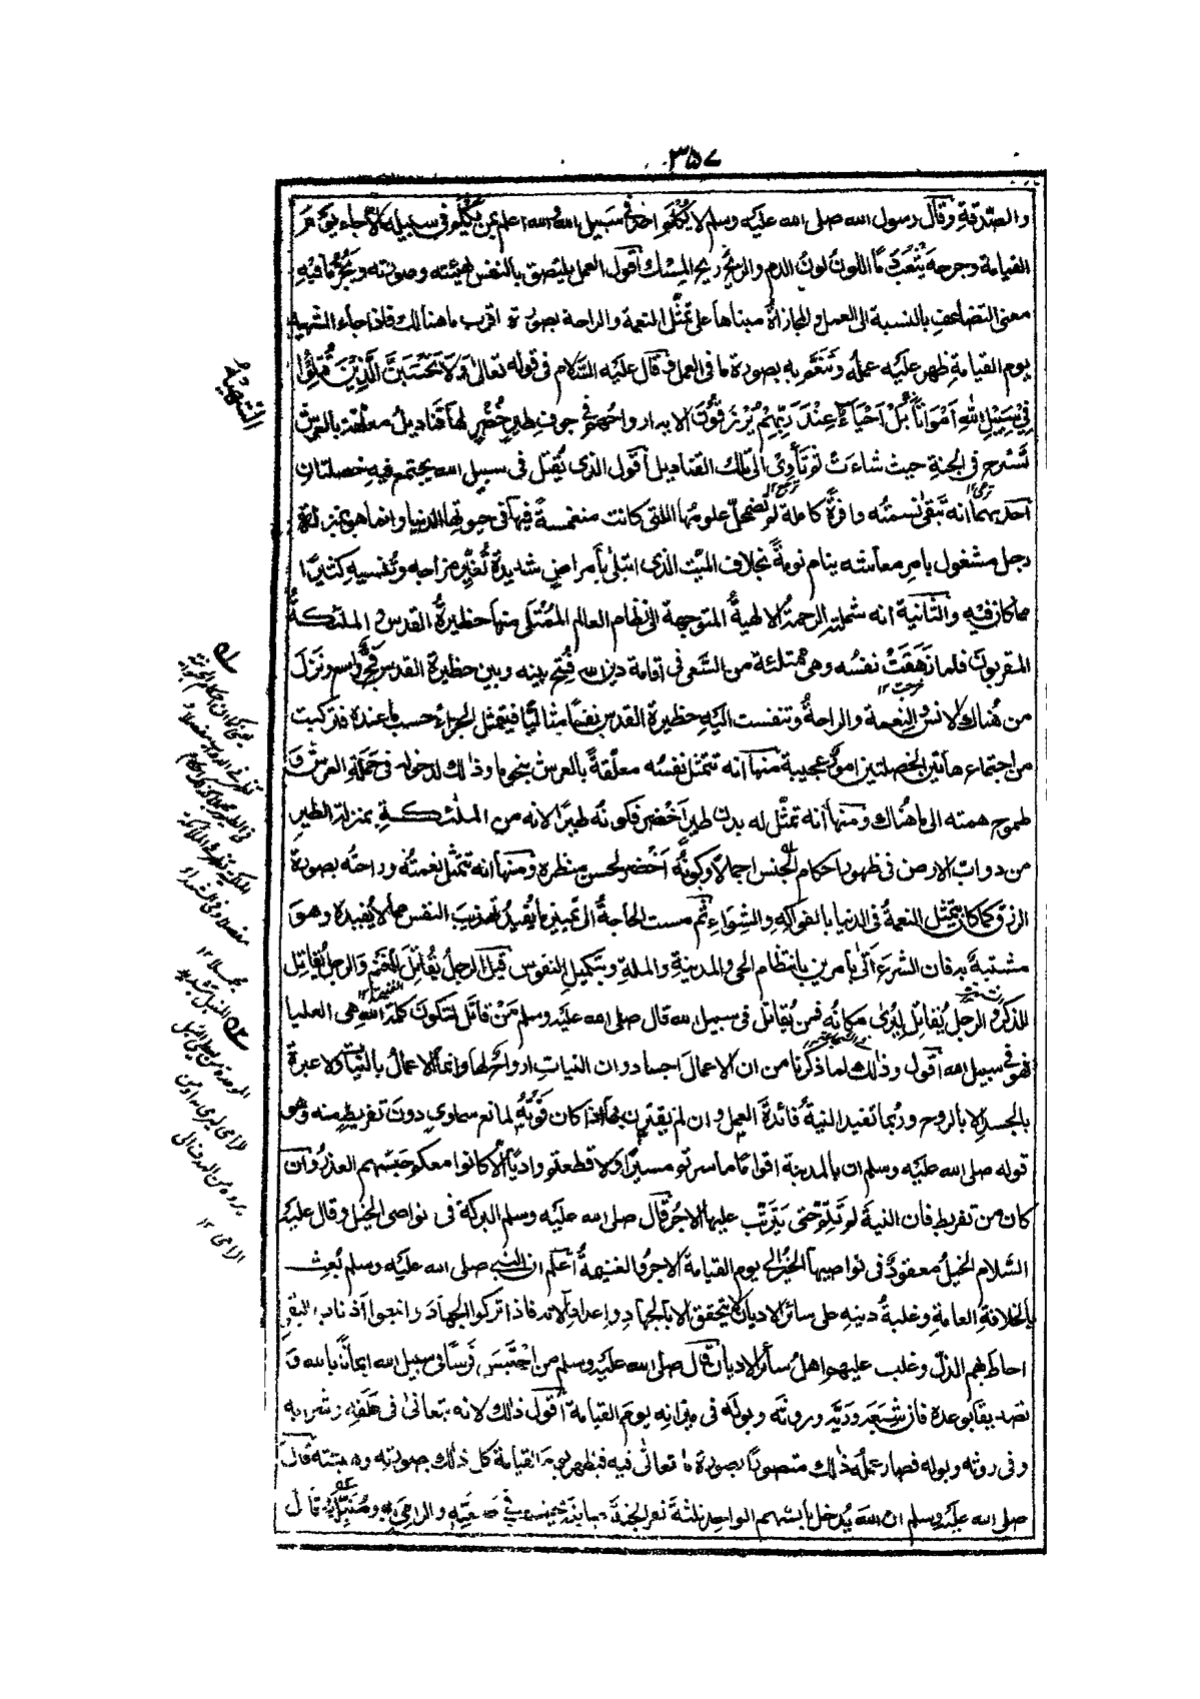 ٣٥٧
والصدقة وقال رسول الله صلى الله عليه وسلم لا يكلم احد في سبيل الله والله اعلم بمن يكلم في سبيله الا جاء يوم
القيامة وجرحه يثعب دما اللون لون الدم والريح ريح المسك اقول العمل يلتصق بالنفس بهيئته وصورته ويجر ما فيه
معنى التضاعف بالنسبة الى العمل والمجازاة مبناها على تمثل النعمة والراحة بصورة اقرب ما هنالك فاذا جاء الشهيد
يوم القيامة ظهر عليه عمله وتنعم به بصورة ما في العمل وقال عليه السلام في قوله تعالى وَلَا تَحْسَبَنَّ الَّذِيْنَ قُتِلُوْا
فِيْ سَبِيْلِ اللهِ اَمْوَاتًا بَلْ اَحْيَاءٌ عِنْدَ رَبِّهِمْ يُرْزَقُوْنَ الاية ارواحهم في جوف طير خضر لها قناديل معلقة بالعرش
تسرح في الجنة حيث شاءت ثم تأوي الى تلك القناديل اقول الذي يقتل في سبيل الله يجتمع فيه خصلتان
احدىهما انه تبقى نسمته وافرة كاملة لم تضمحل علومها التي كانت منغمسة فيها في حيوتها الدنيا وانما هو بمنزلة
رجل مشغول بامر معاشه ينام نومة بخلاف الميت الذي ابتلي بأمراض شديدة تغير مزاجه وتنسيه كثيرا
مما كان فيه والثانية انه شملته الرحمة الالهية المتوجهة الى نظام العالم الممتلئ منها حظيرة القدس والملئكة
المقربون فلما زهقت نفسه وهي ممتلئة من السعي في اقامة دين الله فتح بينه وبين حظيرة القدس فج واسع ونزل
من هناك الانس والنعمة والراحة وتنفست اليه حظيرة القدس نفسا مثاليا فيتمثل الجزاء حسب ما عنده فتركبت
من اجتماع هاتين الخصلتين امور عجيبة منها انه تتمثل نفسه معلقة بالعرش بنحو ما وذلك لدخوله في حملة العرش و
طموح همته الى ما هناك ومنها انه تمثل له بدن طير اخضر فكونه طيرا لانه من الملئكة بمنزلة الطير
من دواب الارض في ظهور احكام الجنس اجمالا وكونه اخضر لحسن منظره ومنها انه تتمثل نعمته وراحته بصورة
الرزق كما كان يتمثل النعمة في الدنيا بالفواكه والشواء ثم مست الحاجة الى تمييز ما يفيد تهذيب النفس مما لا يفيده وهو
مشتبه به فان الشرع اتى بأمرين بانتظام الحي والمدينة والملة وبتكميل النفوس قيل الرجل يقاتل للمغنم والرجل يقاتل
للذكر والرجل يقاتل ليرى مكانه فمن يقاتل في سبيل الله قال صلى الله عليه وسلم من قاتل لتكون كلمة الله هي العليا
فهو في سبيل الله اقول وذلك لما ذكرنا من ان الاعمال اجساد وان النيات ارواح لها وانما الاعمال بالنيات ولا عبرة
بالجسد الا بالروح وربما تفيد النية فائدة العمل وان لم يقترن بها اذا كان فوته لمانع سماوي دون تفريط منه وهو
قوله صلى الله عليه وسلم ان بالمدينة اقواما ما سرتم مسيرا ولا قطعتم واديا الا كانوا معكم حبسهم العذر وان
كان من تفريط فان النية لم تتم حتى يترتب عليها الاجر قال صلى الله عليه وسلم البركة في نواصي الخيل وقال عليه
السلام الخيل معقود في نواصيها الخير الى يوم القيامة الاجر والغنيمة اعلم ان النبي صلى الله عليه وسلم بعث
بالخلافة العامة وغلبة دينه على سائر الاديان لا يتحقق الا بالجهاد واعداد الاته فاذا تركوا الجهاد واتبعوا اذناب البقر
احاط بهم الذل وغلب عليهم اهل سائر الاديان قال صلى الله عليه وسلم من احتبس فرسا في سبيل الله ايمانا بالله و
تصديقا بوعده فان شبعه وريه وروثه وبوله في ميزانه يوم القيامة اقول ذلك لانه يتعانى في علفه وشرابه
وفي روثه وبوله فصار عمله ذلك متصورا بصورة ما تعانى فيه فيظهر يوم القيامة كل ذلك بصورته وهيئته قال
صلى الله عليه وسلم ان الله يدخل بالسهم الواحد ثلثة نفر الجنة صانعه يحتسب في صنعته والرامي به ومنبله قال
الشهيد